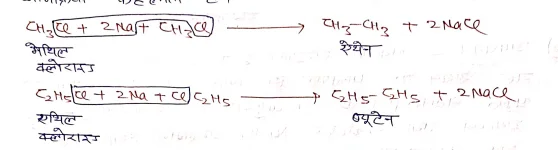 CH₃Cl + 2Na + CH₃Cl ⟶ CH₃-CH₃ + 2NaCl
मेथिल एथेन
क्लोराइड
C₂H₅Cl + 2Na + Cl C₂H₅ ⟶ C₂H₅-C₂H₅ + 2NaCl
एथिल ब्यूटेन
क्लोराइड